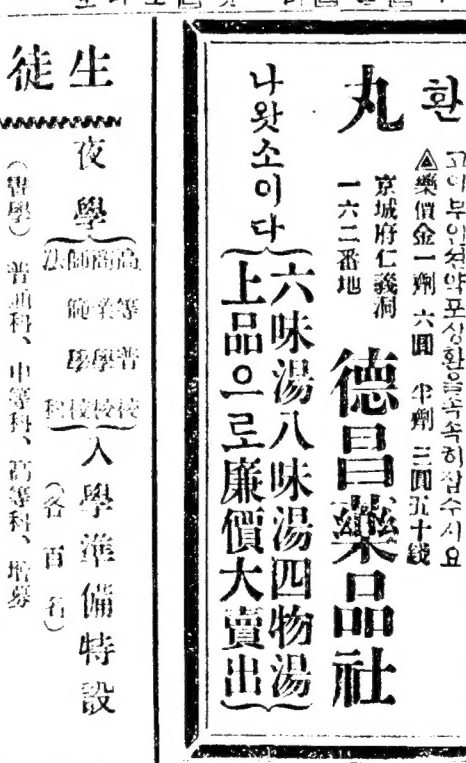 환
丸
고이부인첨약포상환을속속히잡수시요
▲藥價金一劑 六圓 半劑 三圓五十錢
京城府仁義洞
一六二番地
德昌藥品社
나왓소이다
六味湯八味湯四物湯
上品으로廉價大賣出
生徒
夜學
高等普校
商業學校
師範學校
法科
入學準備特設
(各百名)
(晝學) 普通科、中等科、高等科、增募